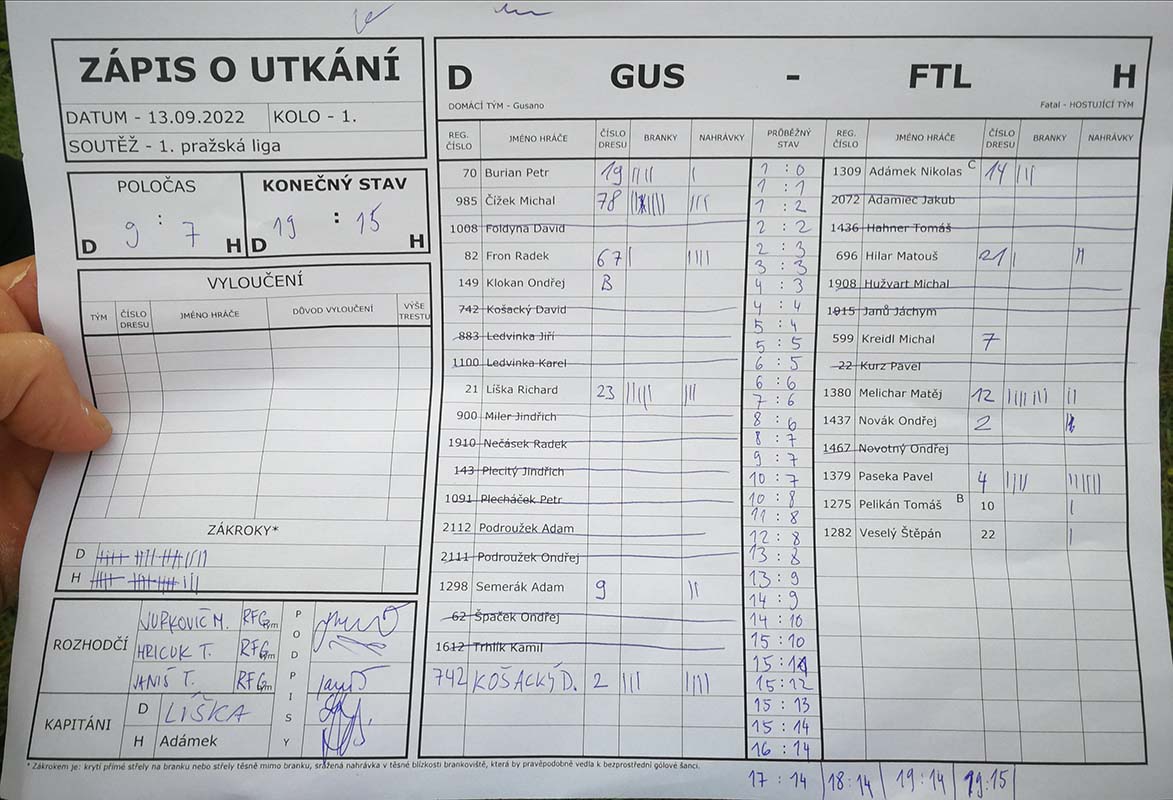 ZÁPIS O UTKÁNÍ
DATUM - 13.09.2022 KOLO - 1.
SOUTĚŽ - 1. pražská liga
POLOČAS KONEČNÝ STAV
D 9 : 7 H D 19 : 15 H
VYLOUČENÍ
TÝM ČÍSLO DRESU JMÉNO HRÁČE DŮVOD VYLOUČENÍ VÝŠE TRESTU
ZÁKROKY*
D
H
ROZHODČÍ
JURKOVIČ M. RFG
HRICUK T. RFG
JANIŠ T. RFG
PODPISY
KAPITÁNI
D LÍŠKA
H Adámek
D GUS - FTL H
DOMÁCÍ TÝM - Gusano Fatal - HOSTUJÍCÍ TÝM
REG. ČÍSLO JMÉNO HRÁČE ČÍSLO DRESU BRANKY NAHRÁVKY PRŮBĚŽNÝ STAV REG. ČÍSLO JMÉNO HRÁČE ČÍSLO DRESU BRANKY NAHRÁVKY
70 Burian Petr 19 |||| |
985 Čížek Michal 78 |||
1008 Foldyna David
82 Fron Radek 67 | ||||
149 Klokan Ondřej B
742 Košacký David
883 Ledvinka Jiří
1100 Ledvinka Karel
21 Líška Richard 23 ||||| |||
900 Miler Jindřich
1910 Nečásek Radek
143 Plecitý Jindřich
1091 Plecháček Petr
2112 Podroužek Adam
2111 Podroužek Ondřej
1298 Semerák Adam 9 ||
62 Špaček Ondřej
1612 Trhlík Kamil
742 KOŠACKÝ D. 2 ||| ||||
1 : 0
1 : 1
1 : 2
2 : 2
2 : 3
3 : 3
4 : 3
4 : 4
5 : 4
5 : 5
6 : 5
6 : 6
7 : 6
8 : 6
8 : 7
9 : 7
10 : 7
10 : 8
11 : 8
12 : 8
13 : 8
13 : 9
14 : 9
14 : 10
15 : 10
15 : 11
15 : 12
15 : 13
15 : 14
16 : 14
17 : 14 18:14 19:14 19:15
1309 Adámek Nikolas C 14 |||
2072 Adamiec Jakub
1436 Hahner Tomáš
696 Hilar Matouš 21 |
1908 Hužvart Michal
1915 Janů Jáchym
599 Kreidl Michal 7
22 Kurz Pavel
1380 Melichar Matěj 12 ||||||| ||
1437 Novák Ondřej 2
1467 Novotný Ondřej
1379 Paseka Pavel 4 |||| ||||||
1275 Pelikán Tomáš B 10 |
1282 Veselý Štěpán 22 |
* Zákrokem je: krytí přímé střely na branku nebo střely těsně mimo branku, sražená nahrávka v těsné blízkosti brankoviště, která by pravěpodobně vedla k bezprostřední gólové šanci.